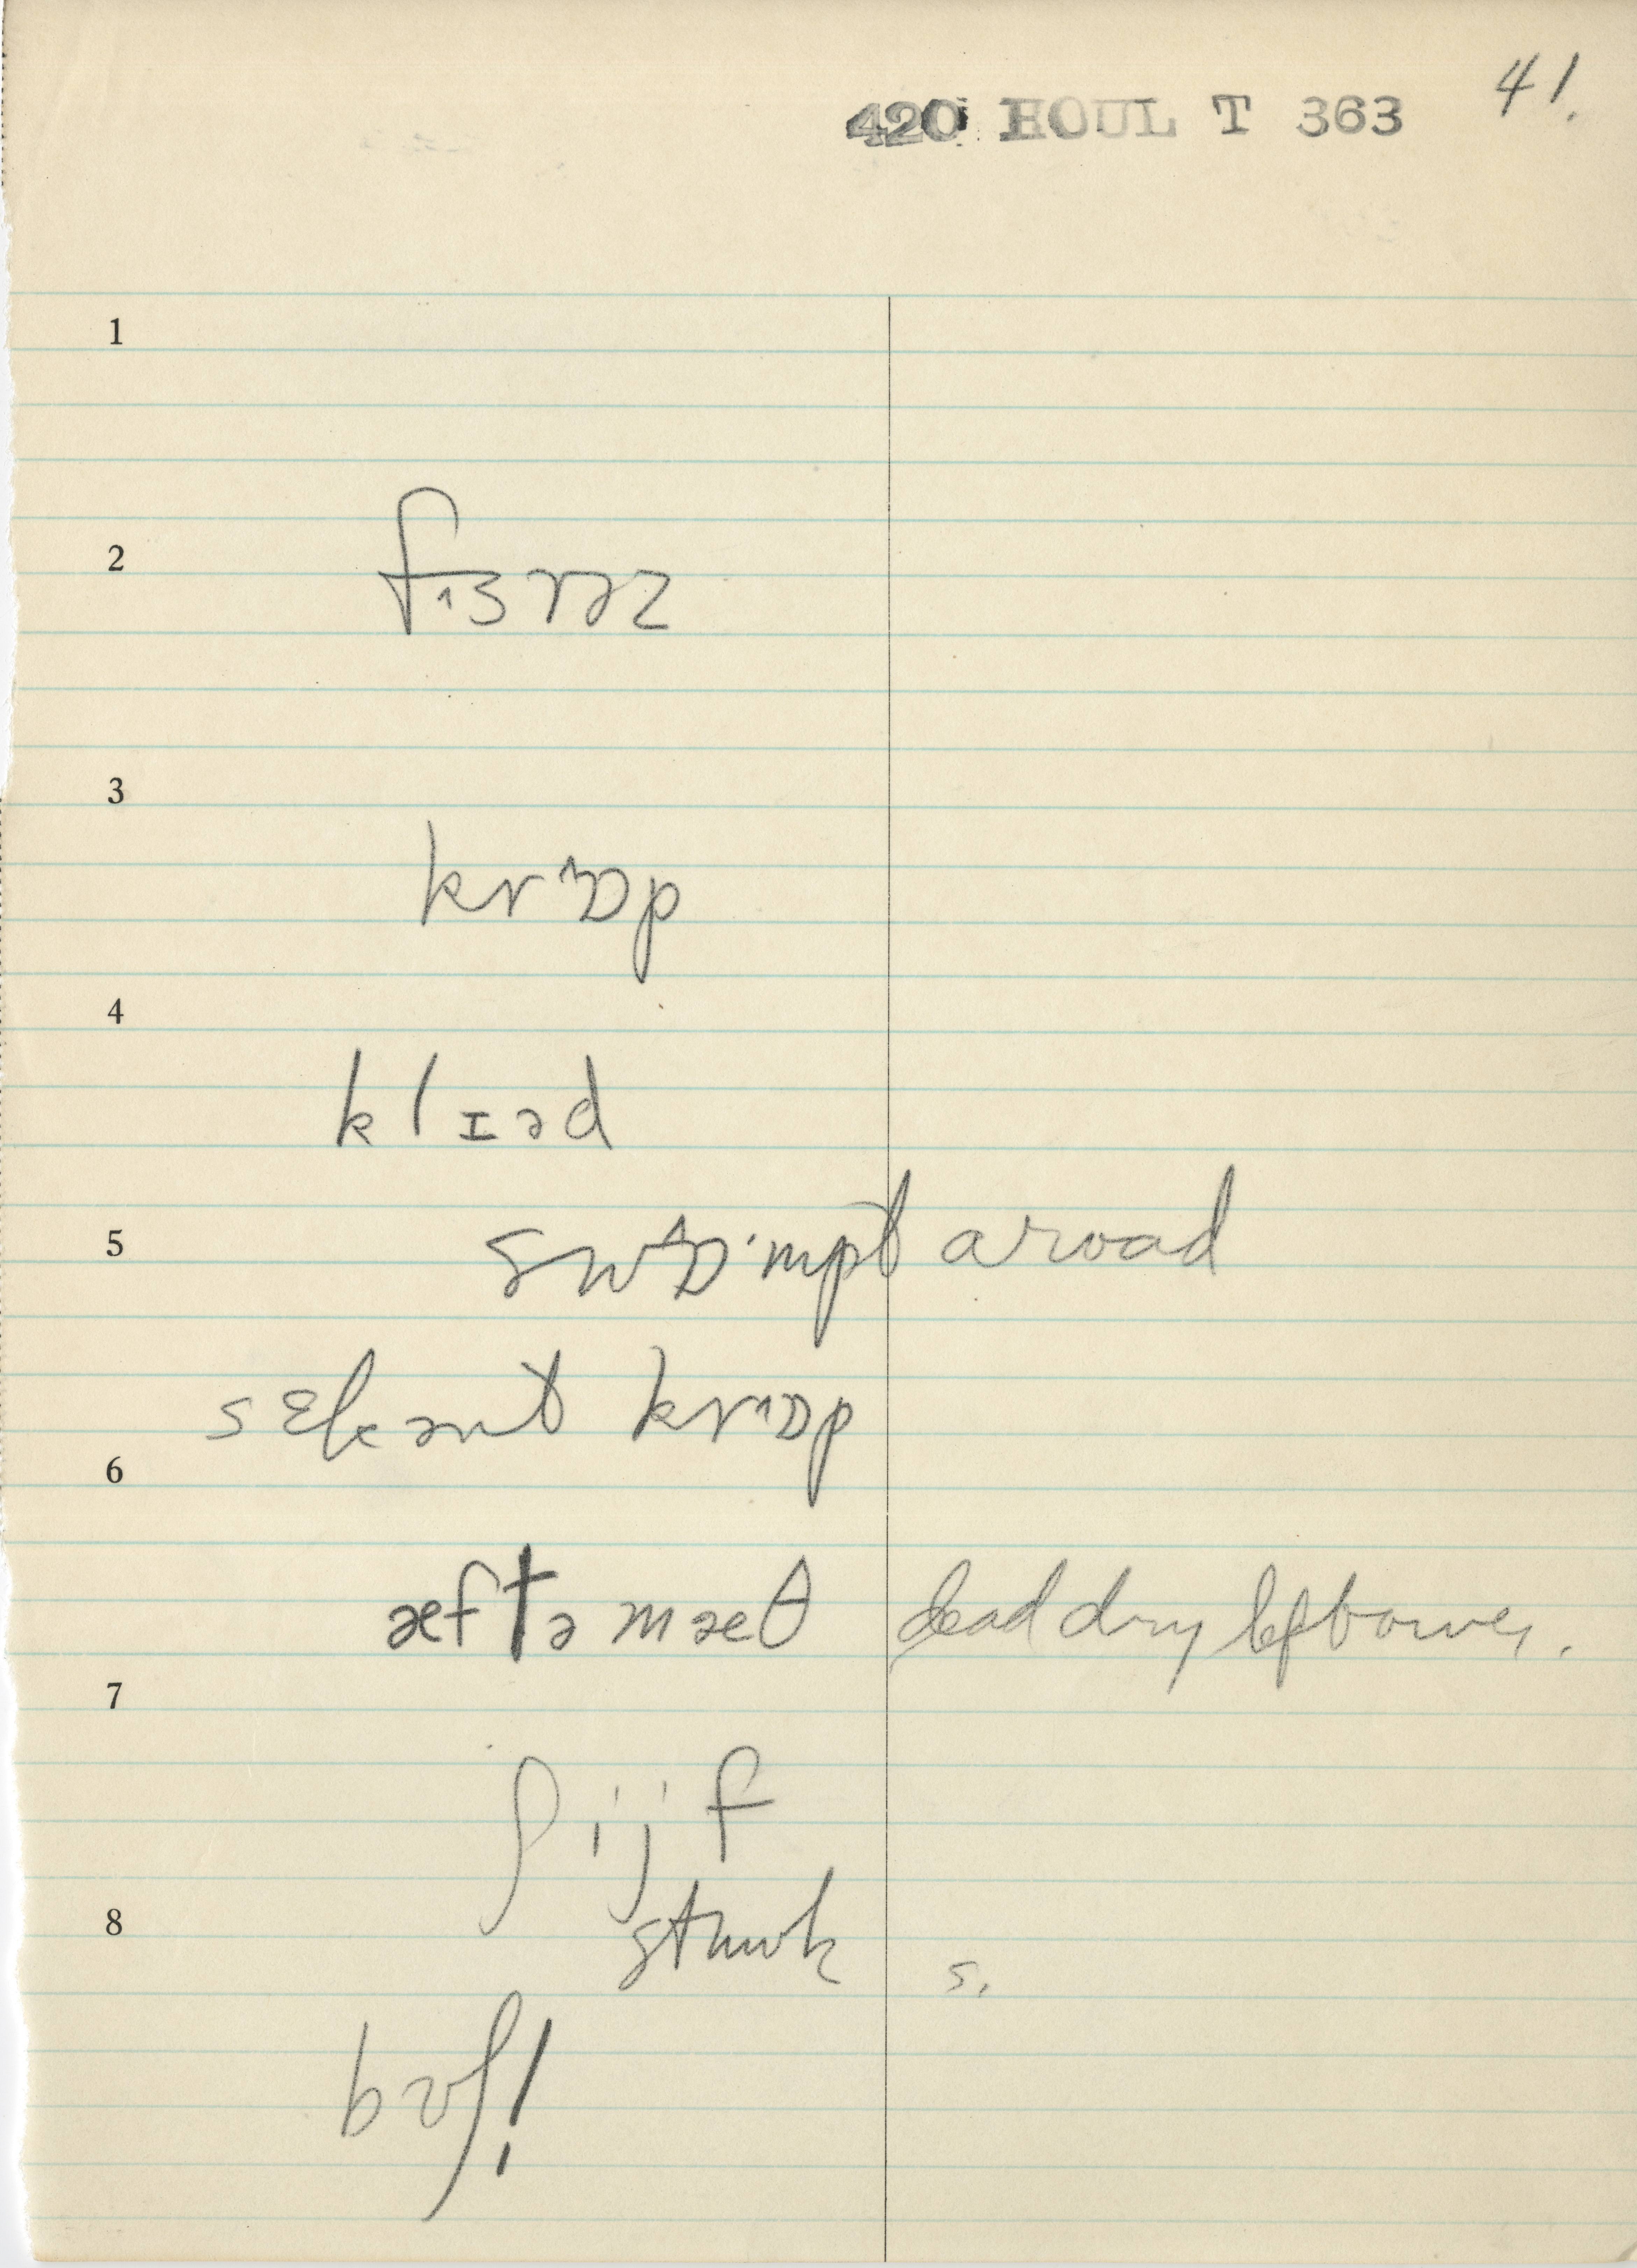 41.
420 HOUL T 363
1
2
fɜrəz
3
krɒp
4
klɪəd
5
swɒ·mpt a road
sɛkənt krɒp
6
æftəmæθ dead dry leftover.
7
ʃijf
8
s.
bʊʃ!